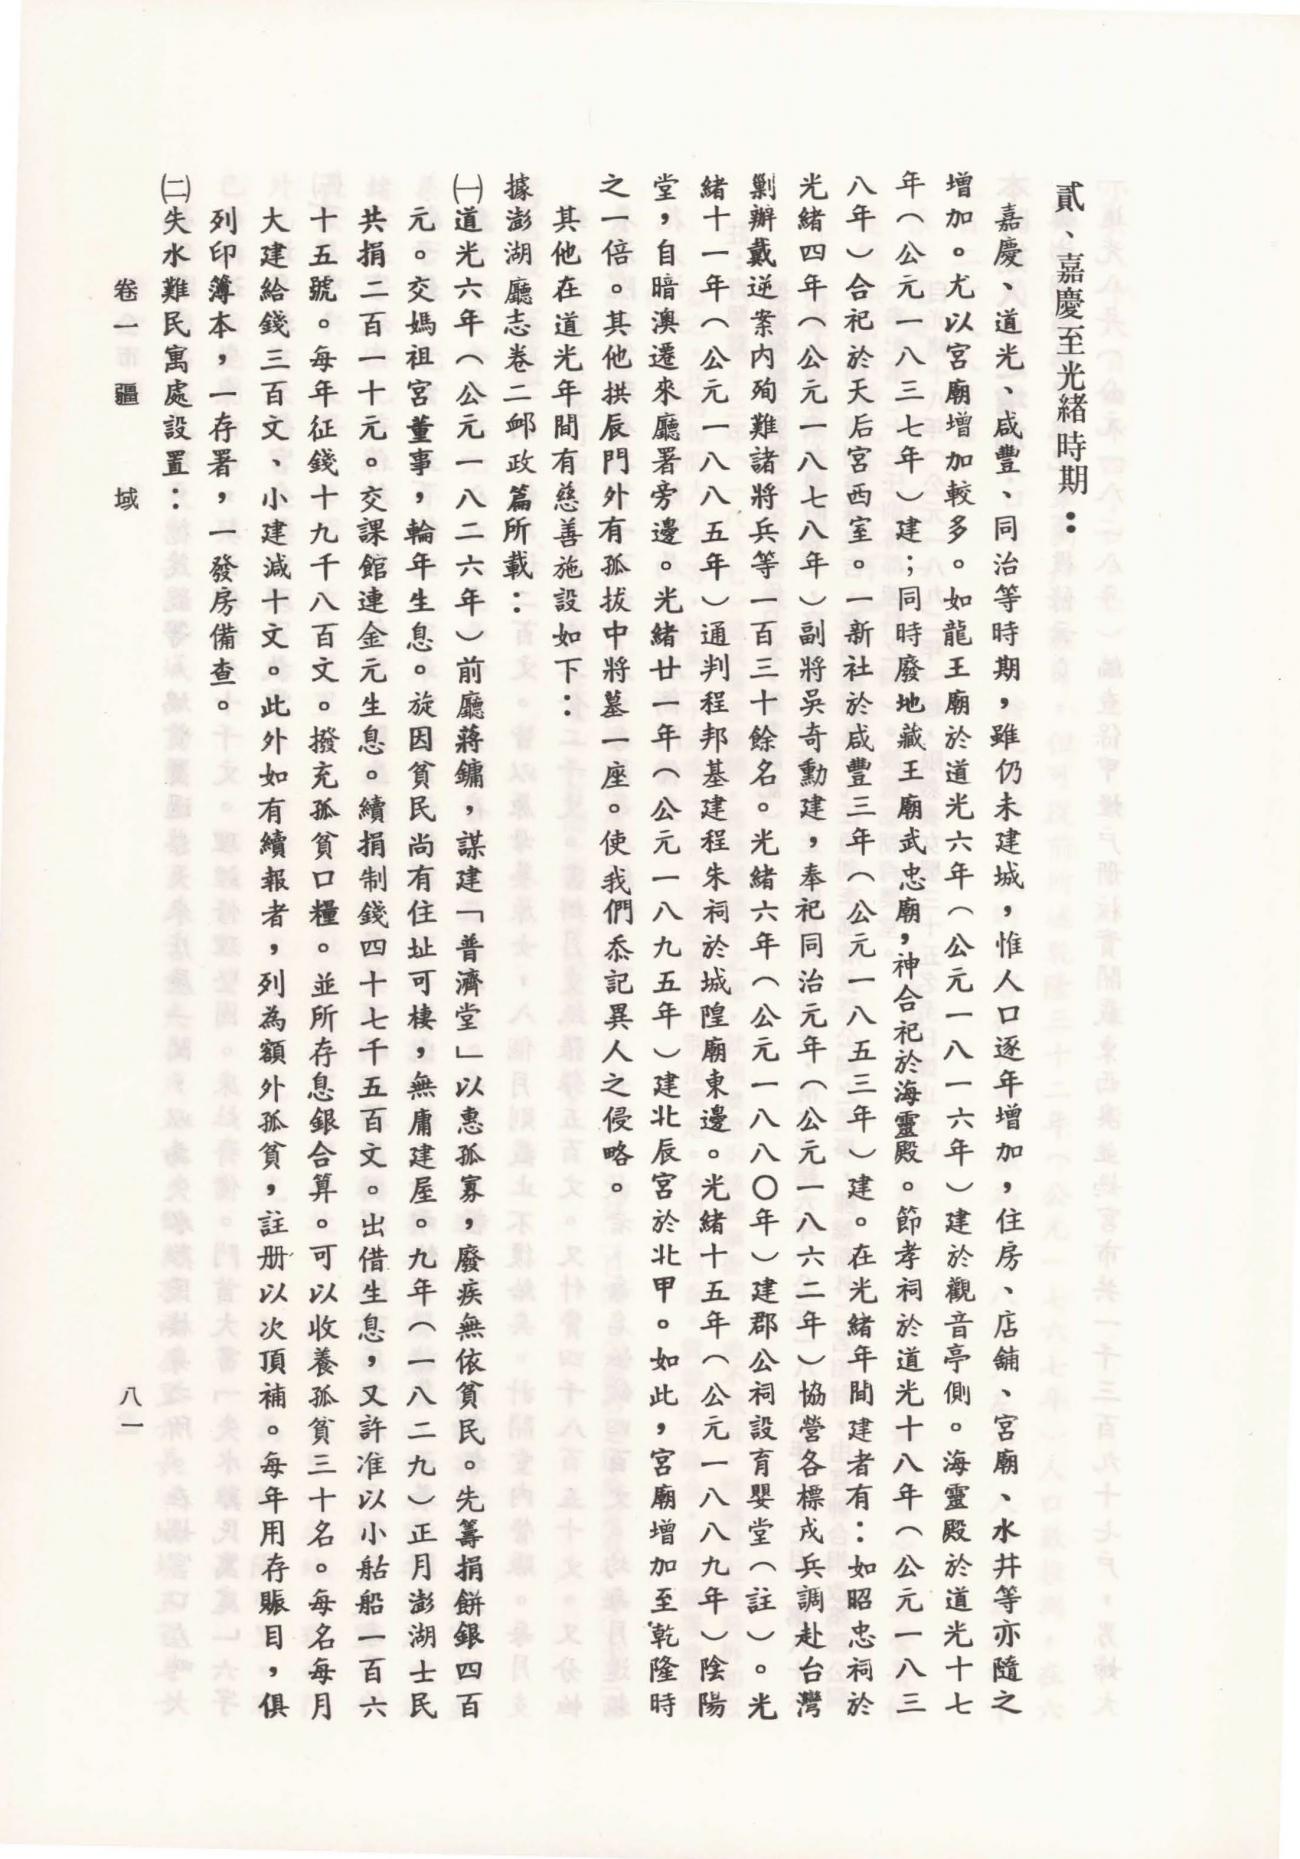 貳、嘉慶至光緒時期：
嘉慶、道光、咸豐、同治等時期，雖仍未建城，惟人口逐年增加，住房、店舖、宮廟、水井等亦隨之
增加。尤以宮廟增加較多。如龍王廟於道光六年（公元一八一六年）建於觀音亭側。海靈殿於道光十七
年（公元一八三七年）建；同時廢地藏王廟武忠廟，神合祀於海靈殿。節孝祠於道光十八年（公元一八三
八年）合祀於天后宮西室。一新社於咸豐三年（公元一八五三年）建。在光緒年間建者有：如昭忠祠於
光緒四年（公元一八七八年）副將吳奇勳建，奉祀同治元年（公元一八六二年）協營各標戍兵調赴台灣
剿辦戴逆案內殉難諸將兵等一百三十餘名。光緒六年（公元一八八〇年）建郡公祠設育嬰堂（註）。光
緒十一年（公元一八八五年）通判程邦基建程朱祠於城隍廟東邊。光緒十五年（公元一八八九年）陰陽
堂，自暗澳遷來廳署旁邊。光緒廿一年（公元一八九五年）建北辰宮於北甲。如此，宮廟增加至乾隆時
之一倍。其他拱辰門外有孤拔中將墓一座。使我們忝記異人之侵略。
其他在道光年間有慈善施設如下：
據澎湖廳志卷二卹政篇所載：
㈠道光六年（公元一八二六年）前廳蔣鏞，謀建「普濟堂」以惠孤寡，廢疾無依貧民。先籌捐餅銀四百
元。交媽祖宮董事，輪年生息。旋因貧民尚有住址可棲，無庸建屋。九年（一八二九）正月澎湖士民
共捐二百一十元。交課館連金元生息。續捐制錢四十七千五百文。出借生息，又許准以小䑩船一百六
十五號。每年征錢十九千八百文。撥充孤貧口糧。並所存息銀合算。可以收養孤貧三十名。每名每月
大建給錢三百文、小建減十文。此外如有續報者，列為額外孤貧，註册以次頂補。每年用存賬目，俱
列印簿本，一存署，一發房備查。
㈡失水難民寓處設置：
卷一疆　域
八一